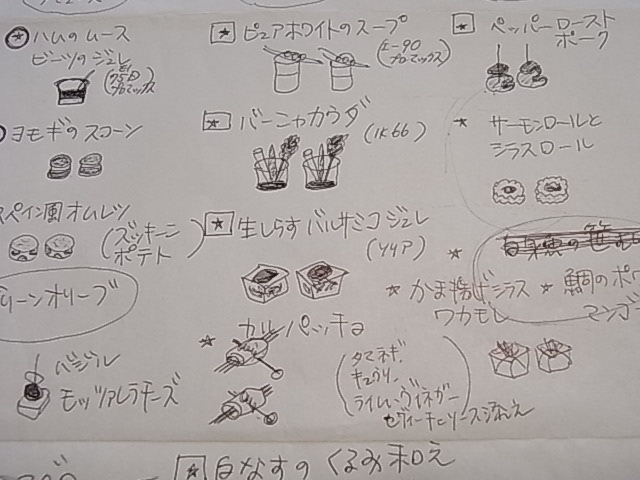 ハムのムース
ビーツのジュレ
ヨモギのスコーン
スペイン風オムレツ
(ズッキーニ
ポテト)
グリーンオリーブ
バジル
モッツァレラチーズ
ピュアホワイトのスープ
(E-90
プロマックス)
バーニャカウダ
(1K66)
生しらす バルサミコジュレ
(44P)
カルパッチョ
(タマネギ
キュウリ
ライム
セヴィーチェソース添え
ペッパーロースト
ポーク
サーモンロールと
シラスロール
かま揚げシラス
ワカモレ
鯛のポワ
マンゴー
白なすの くるみ和え